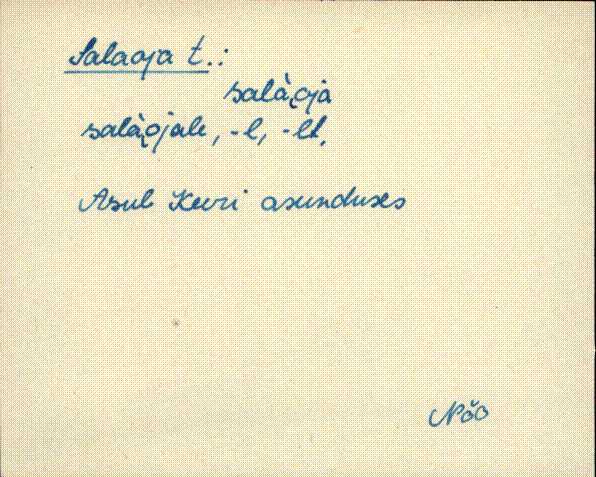 Salaoja t.:
salà̮oja
salà̮ojale, -l, -lt.
Asub Keeri asunduses
Nõo